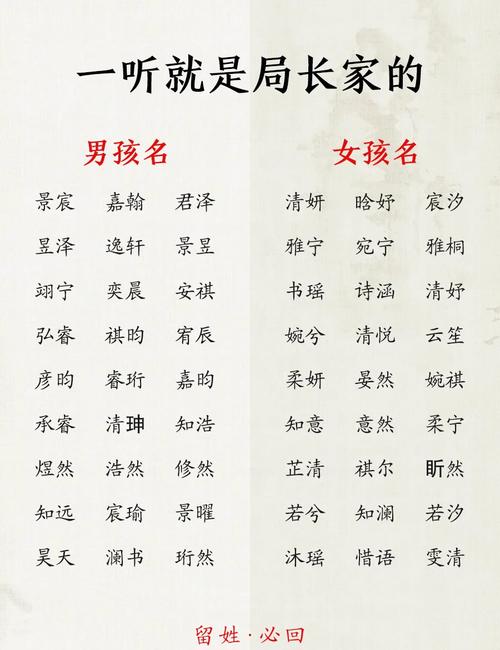 一听就是局长家的
男孩名
景宸 嘉翰 君泽
昱泽 逸轩 景昱
翊宁 奕晨 安祺
弘睿 祺昀 宥辰
彦昀 睿珩 嘉昀
承睿 清珅 知浩
煜然 浩然 修然
知远 宸瑜 景曜
昊天 澜书 珩然
女孩名
清妍 晗妤 宸汐
雅宁 宛宁 雅桐
书瑶 诗涵 清妤
婉兮 清悦 云笙
柔妍 晏然 婉祺
知意 意然 柔宁
芷清 祺尔 昕然
若兮 知澜 若汐
沐瑶 惜语 雯清
留姓·必回